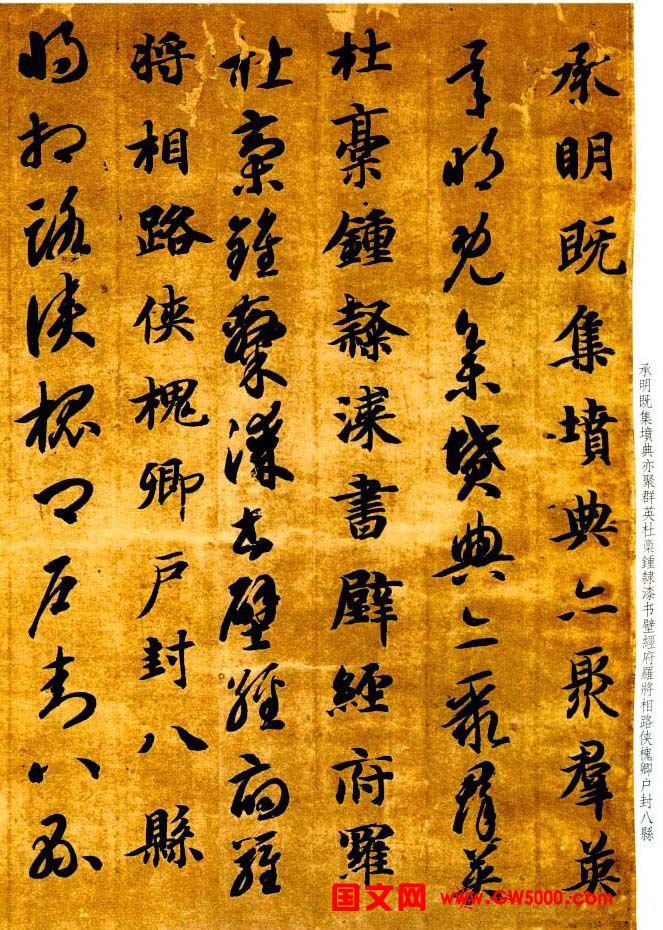 承明既集墳典亦聚羣英
承明既集墳典亦聚羣英
杜稾鍾隸漆書壁經府羅
杜稾鍾隸漆書壁經府羅
将相路侠槐卿户封八縣
将相路侠槐卿户封八縣
承明既集墳典亦聚群英杜稾鍾隸漆书壁經府羅將相路侠槐卿户封八縣
国文网 www.GW5000.com